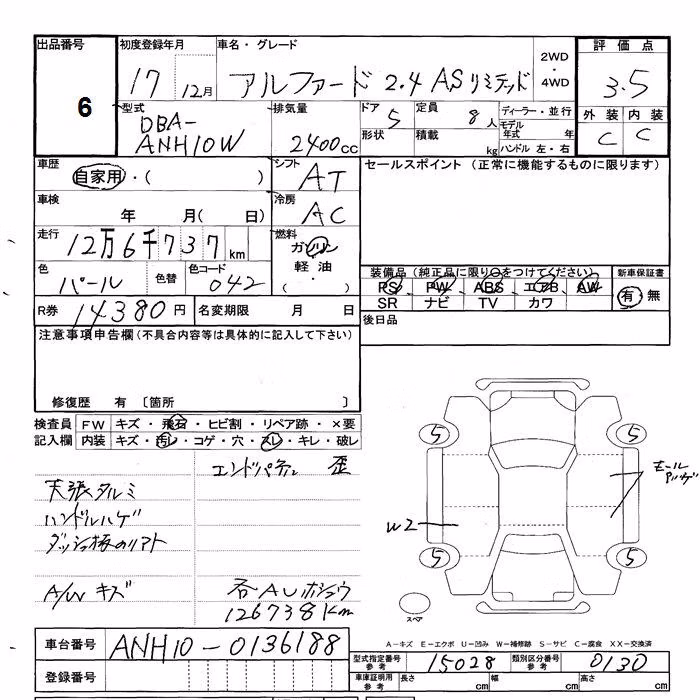 出品番号 6
初度登録年月 17 12月
車名・グレード アルファード 2.4 ASリミテッド 2WD・4WD
評価点 3.5
外装 C 内装 C
型式 DBA-ANH10W
排気量 2400cc
ドア 5 定員 8人
形状 積載 kg
ディーラー・並行
モデル年式 年
ハンドル 左・右
車歴 自家用・( )
シフト AT
車検 年 月( 日)
冷房 AC
走行 12万6千737km
燃料 ガソリン 軽油 ( ・ )
色 パール 色替 色コード 042
R券 14380円 名変期限 月 日
セールスポイント (正常に機能するものに限ります)
装備品 (純正品に限り○をつけてください)
PS PW ABS エアB AW
SR ナビ TV カワ
新車保証書 有・無
後日品
注意事項申告欄(不具合内容等は具体的に記入して下さい)
修復歴 有 〔箇所 〕
検査員記入欄
FW キズ・飛石・ヒビ割・リペア跡・×要
内装 キズ・汚レ・コゲ・穴・スレ・キレ・破レ
エンドパネル 歪
天張タルミ
ハンドルハゲ
A/W キズ
126738Km
5 5 5 5
モール
W2 7
スペア
車台番号 ANH10-0136188
登録番号
A-キズ E-エクボ U-凹み W-補修跡 S-サビ C-腐食 XX-交換済
型式指定番号 参考 15028 類別区分番号 参考 0130
車庫証明用 参考 長さ cm 幅 cm 高さ cm